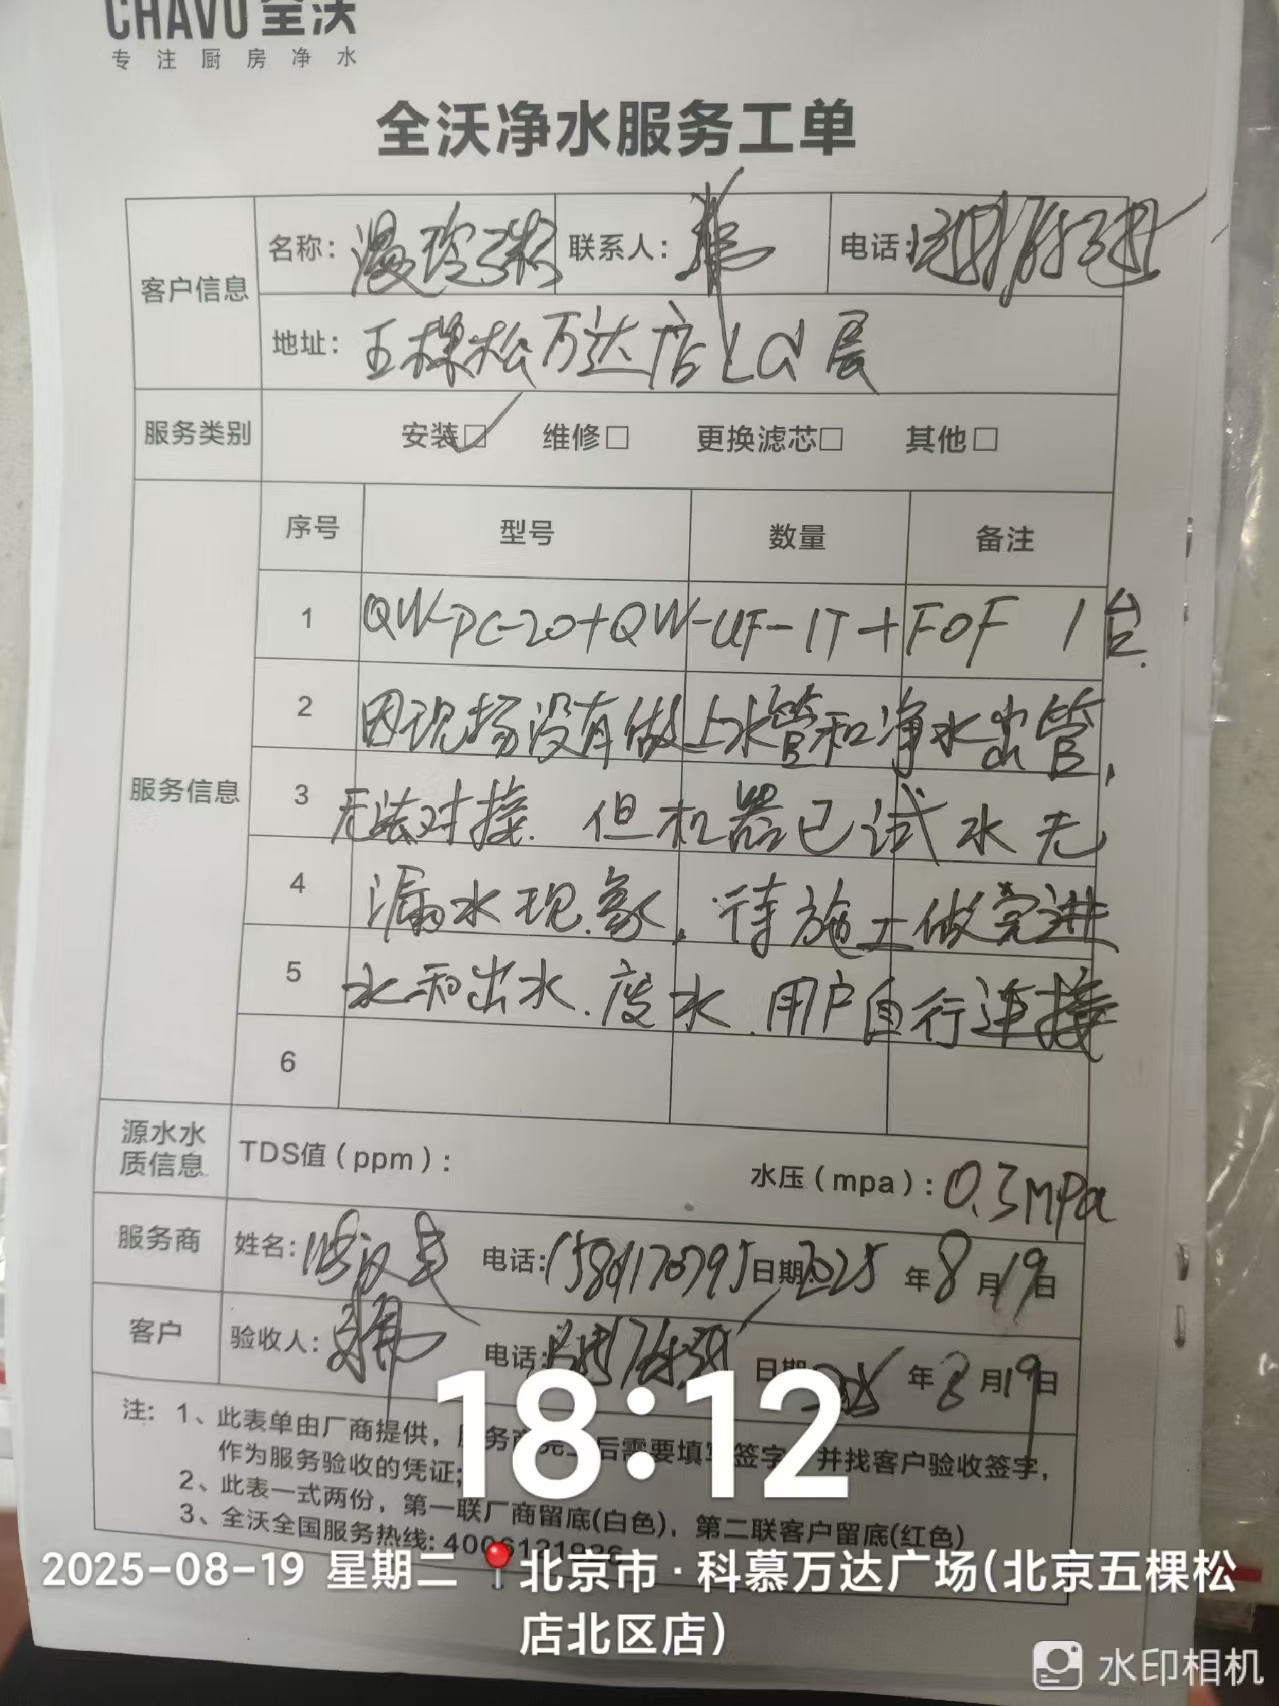 CHAVO 全沃
专注厨房净水
全沃净水服务工单
客户信息
名称：
联系人：
电话：
地址：五棵松万达店L層
服务类别 安装☑ 维修□ 更换滤芯□ 其他□
服务信息
序号 型号 数量 备注
1 QW-PC-20+QW-UF-1T+FOF 1台
2 因现场没有做上水管和净水出管，
3 无法对接．但机器已试水无
4 漏水现象．待施工做完进
5 水和出水．废水．用户自行连接
6
源水水质信息 TDS值（ppm）： 水压（mpa）：0.3MPa
服务商 姓名： 电话：15811170795 日期：2025年8月19日
客户 验收人： 电话： 日期：2025年8月19日
注：1、此表单由厂商提供，后需要填写签字，并找客户验收签字，
作为服务验收的凭证；
2、此表一式两份，第一联厂商留底(白色)，第二联客户留底(红色)
3、全沃全国服务热线：
18:12
2025-08-19 星期二 北京市·科慕万达广场(北京五棵松
店北区店)
水印相机